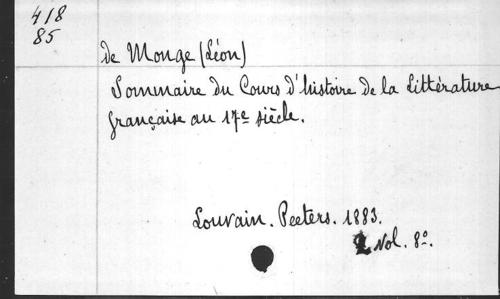 418
85
de Monge (Léon)
Sommaire du Cours d'histoire de la Littérature
française au 17e siècle.
Louvain. Peeters. 1883.
2 vol. 8o.